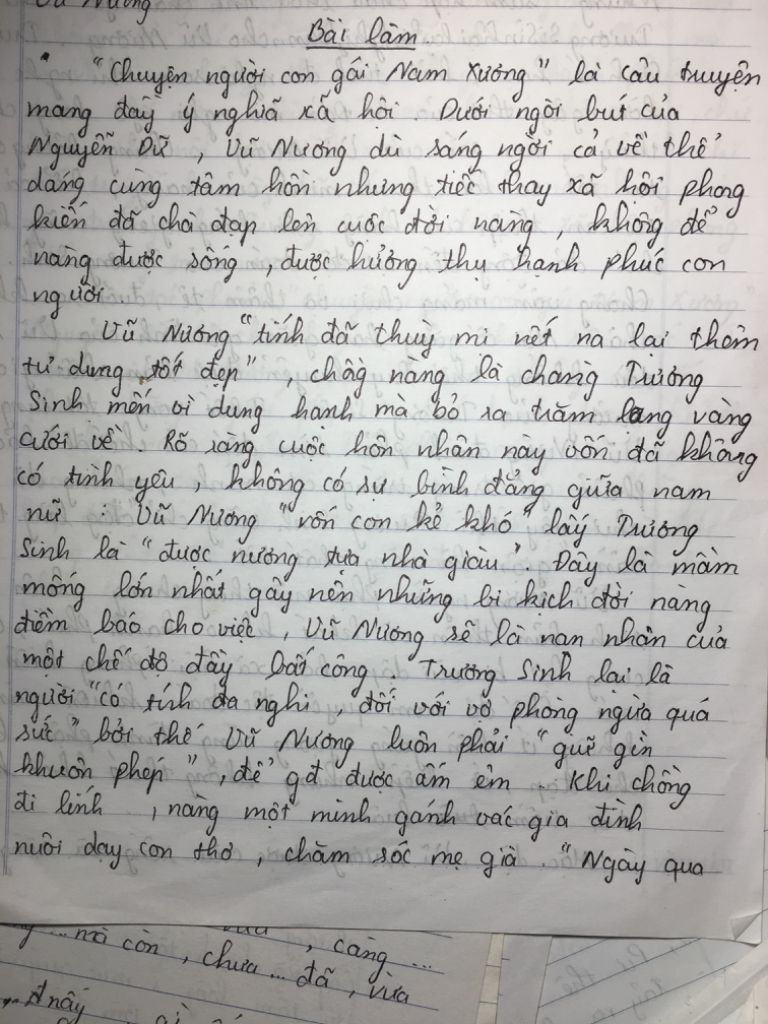 Vũ Nương
Bài làm
"Chuyện người con gái Nam Xương" là câu truyện
mang đầy ý nghĩa xã hội. Dưới ngòi bút của
Nguyễn Dữ, Vũ Nương dù sáng ngời cả về thể
dáng cùng tâm hồn nhưng tiếc thay xã hội phong
kiến đã chà đạp lên cuộc đời nàng, không để
nàng được sống, được hưởng thụ hạnh phúc con
người
Vũ Nương "tính đã thuỳ mị nết na lại thêm
tư dung tốt đẹp", chồng nàng là chàng Trương
Sinh mến vì dung hạnh mà bỏ ra trăm lạng vàng
cưới về. Rõ ràng cuộc hôn nhân này vốn đã không
có tình yêu, không có sự bình đẳng giữa nam
nữ : Vũ Nương "vốn con kẻ khó" lấy Trương
Sinh là "được nương tựa nhà giàu". Đây là mầm
mống lớn nhất gây nên những bi kịch đời nàng
điềm báo cho việc, Vũ Nương sẽ là nạn nhân của
một chế độ đầy bất công. Trương Sinh lại là
người "có tính đa nghi, đối với vợ phòng ngừa quá
sức" bởi thế Vũ Nương luôn phải "giữ gìn
khuôn phép", để gđ được ấm êm. Khi chồng
đi lính, nàng một mình gánh vác gia đình
nuôi dạy con thơ, chăm sóc mẹ già. "Ngày qua
... mà còn, chưa ... đã, vừa
, càng ...